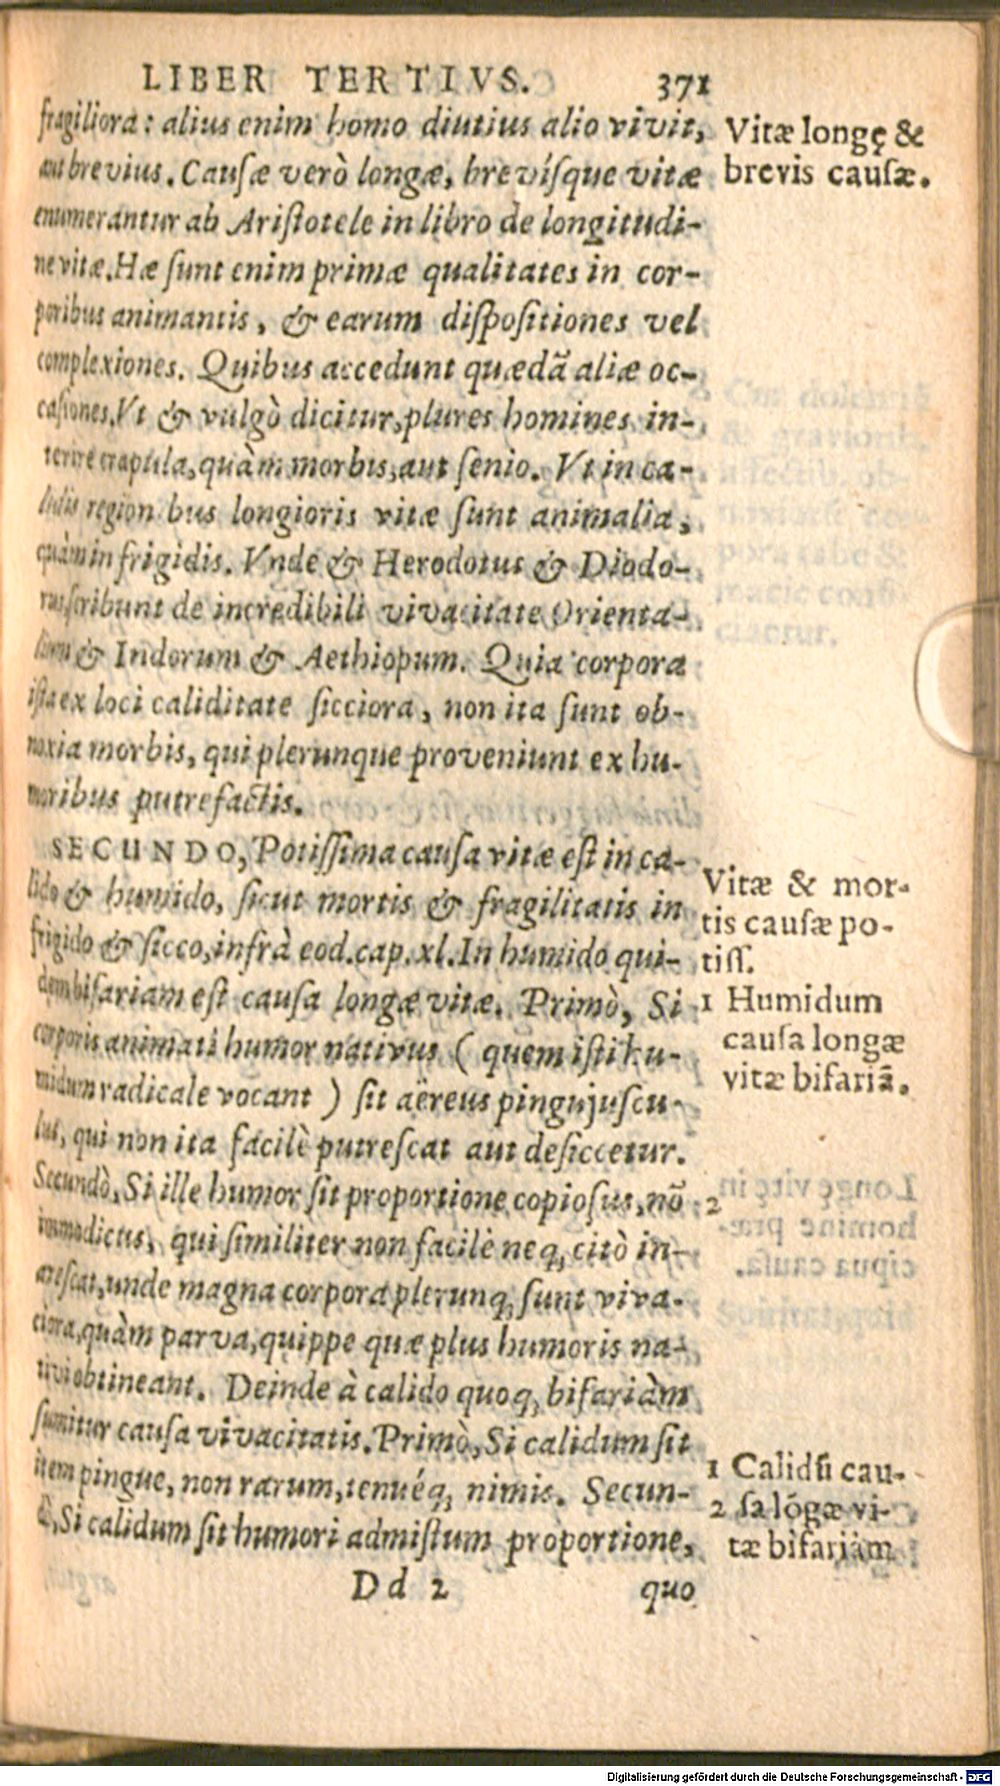 LIBER TERTIVS. 371
fragiliora: alius enim homo diutius alio vivit,
aut brevius. Causæ verò longæ, brevísque vitæ
enumerantur ab Aristotele in libro de longitudi-
ne vitæ. Hæ sunt enim primæ qualitates in cor-
poribus animantis, & earum dispositiones vel
complexiones. Quibus accedunt quædã aliæ oc-
casiones. Vt & vulgò dicitur, plures homines in-
terire crapula, quàm morbis, aut senio. Vt in ca-
lidis region bus longioris vitæ sunt animalia,
quàm in frigidis. Vnde & Herodotus & Diodo-
rus scribunt de incredibili vivacitate Orienta-
lium & Indorum & Aethiopum. Quia corpora
ista ex loci caliditate sicciora, non ita sunt ob-
noxia morbis, qui plerunque proveniunt ex hu-
moribus putrefactis.
SECUNDO, Potissima causa vitæ est in ca-
lido & humido, sicut mortis & fragilitatis in
frigido & sicco, infrà eod. cap. xl. In humido qui-
dem bifariam est causa longæ vitæ. Primò, Si
corporis animati humor nativus ( quem isti hu-
midum radicale vocant ) sit aëreus pingujuscu-
lus, qui non ita facilè putrescat aut desiccetur.
Secundò, Si ille humor sit proportione copiosus, nõ
immodicus, qui similiter non facilè neq; citò in-
arescat, unde magna corpora plerunq; sunt viva-
ciora, quàm parva, quippe quæ plus humoris na-
tivi obtineant. Deinde à calido quoq; bifariàm
sumitur causa vivacitatis. Primò, Si calidum sit
item pingue, non rarum, tenuéq; nimis. Secun-
ò, Si calidum sit humori admistum proportione,
D d 2 quo
Vitæ longę &
brevis causæ.
Vitæ & mor-
tis causæ po-
tiss.
1 Humidum
causa longæ
vitæ bifariã.
2
1 Calidũ cau-
2 sa lõgæ vi-
tæ bifariàm
Digitalisierung gefördert durch die Deutsche Forschungsgemeinschaft - DFG